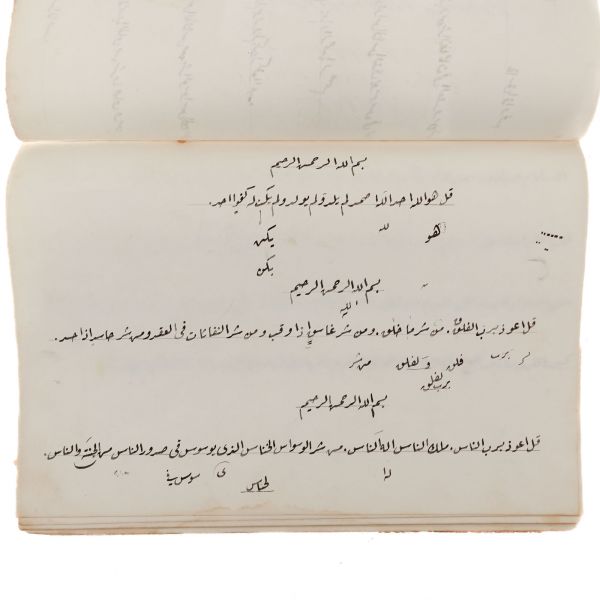 بسم الله الرحمن الرحيم
قل هو الله احد الله الصمد لم يلد ولم يولد ولم يكن له كفوا احد.
هو لله يكن
يكن
بسم الله الرحمن الرحيم
الله
قل اعوذ برب الفلق. من شر ما خلق. ومن شر غاسق اذا وقب ومن شر النفاثات فى العقد ومن شر حاسد اذا حسد.
برب فلق و لفلق من شر
برب لفلق
بسم الله الرحمن الرحيم
قل اعوذ برب الناس. ملك الناس اله الناس. من شر الوسواس الخناس الذى يوسوس فى صدور الناس من الجنة والناس.
لخناس